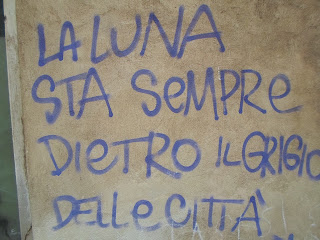 LA LUNA
STA SeMPRe
DIeTRO IL GRIGIO
DeLLe CITTÀ